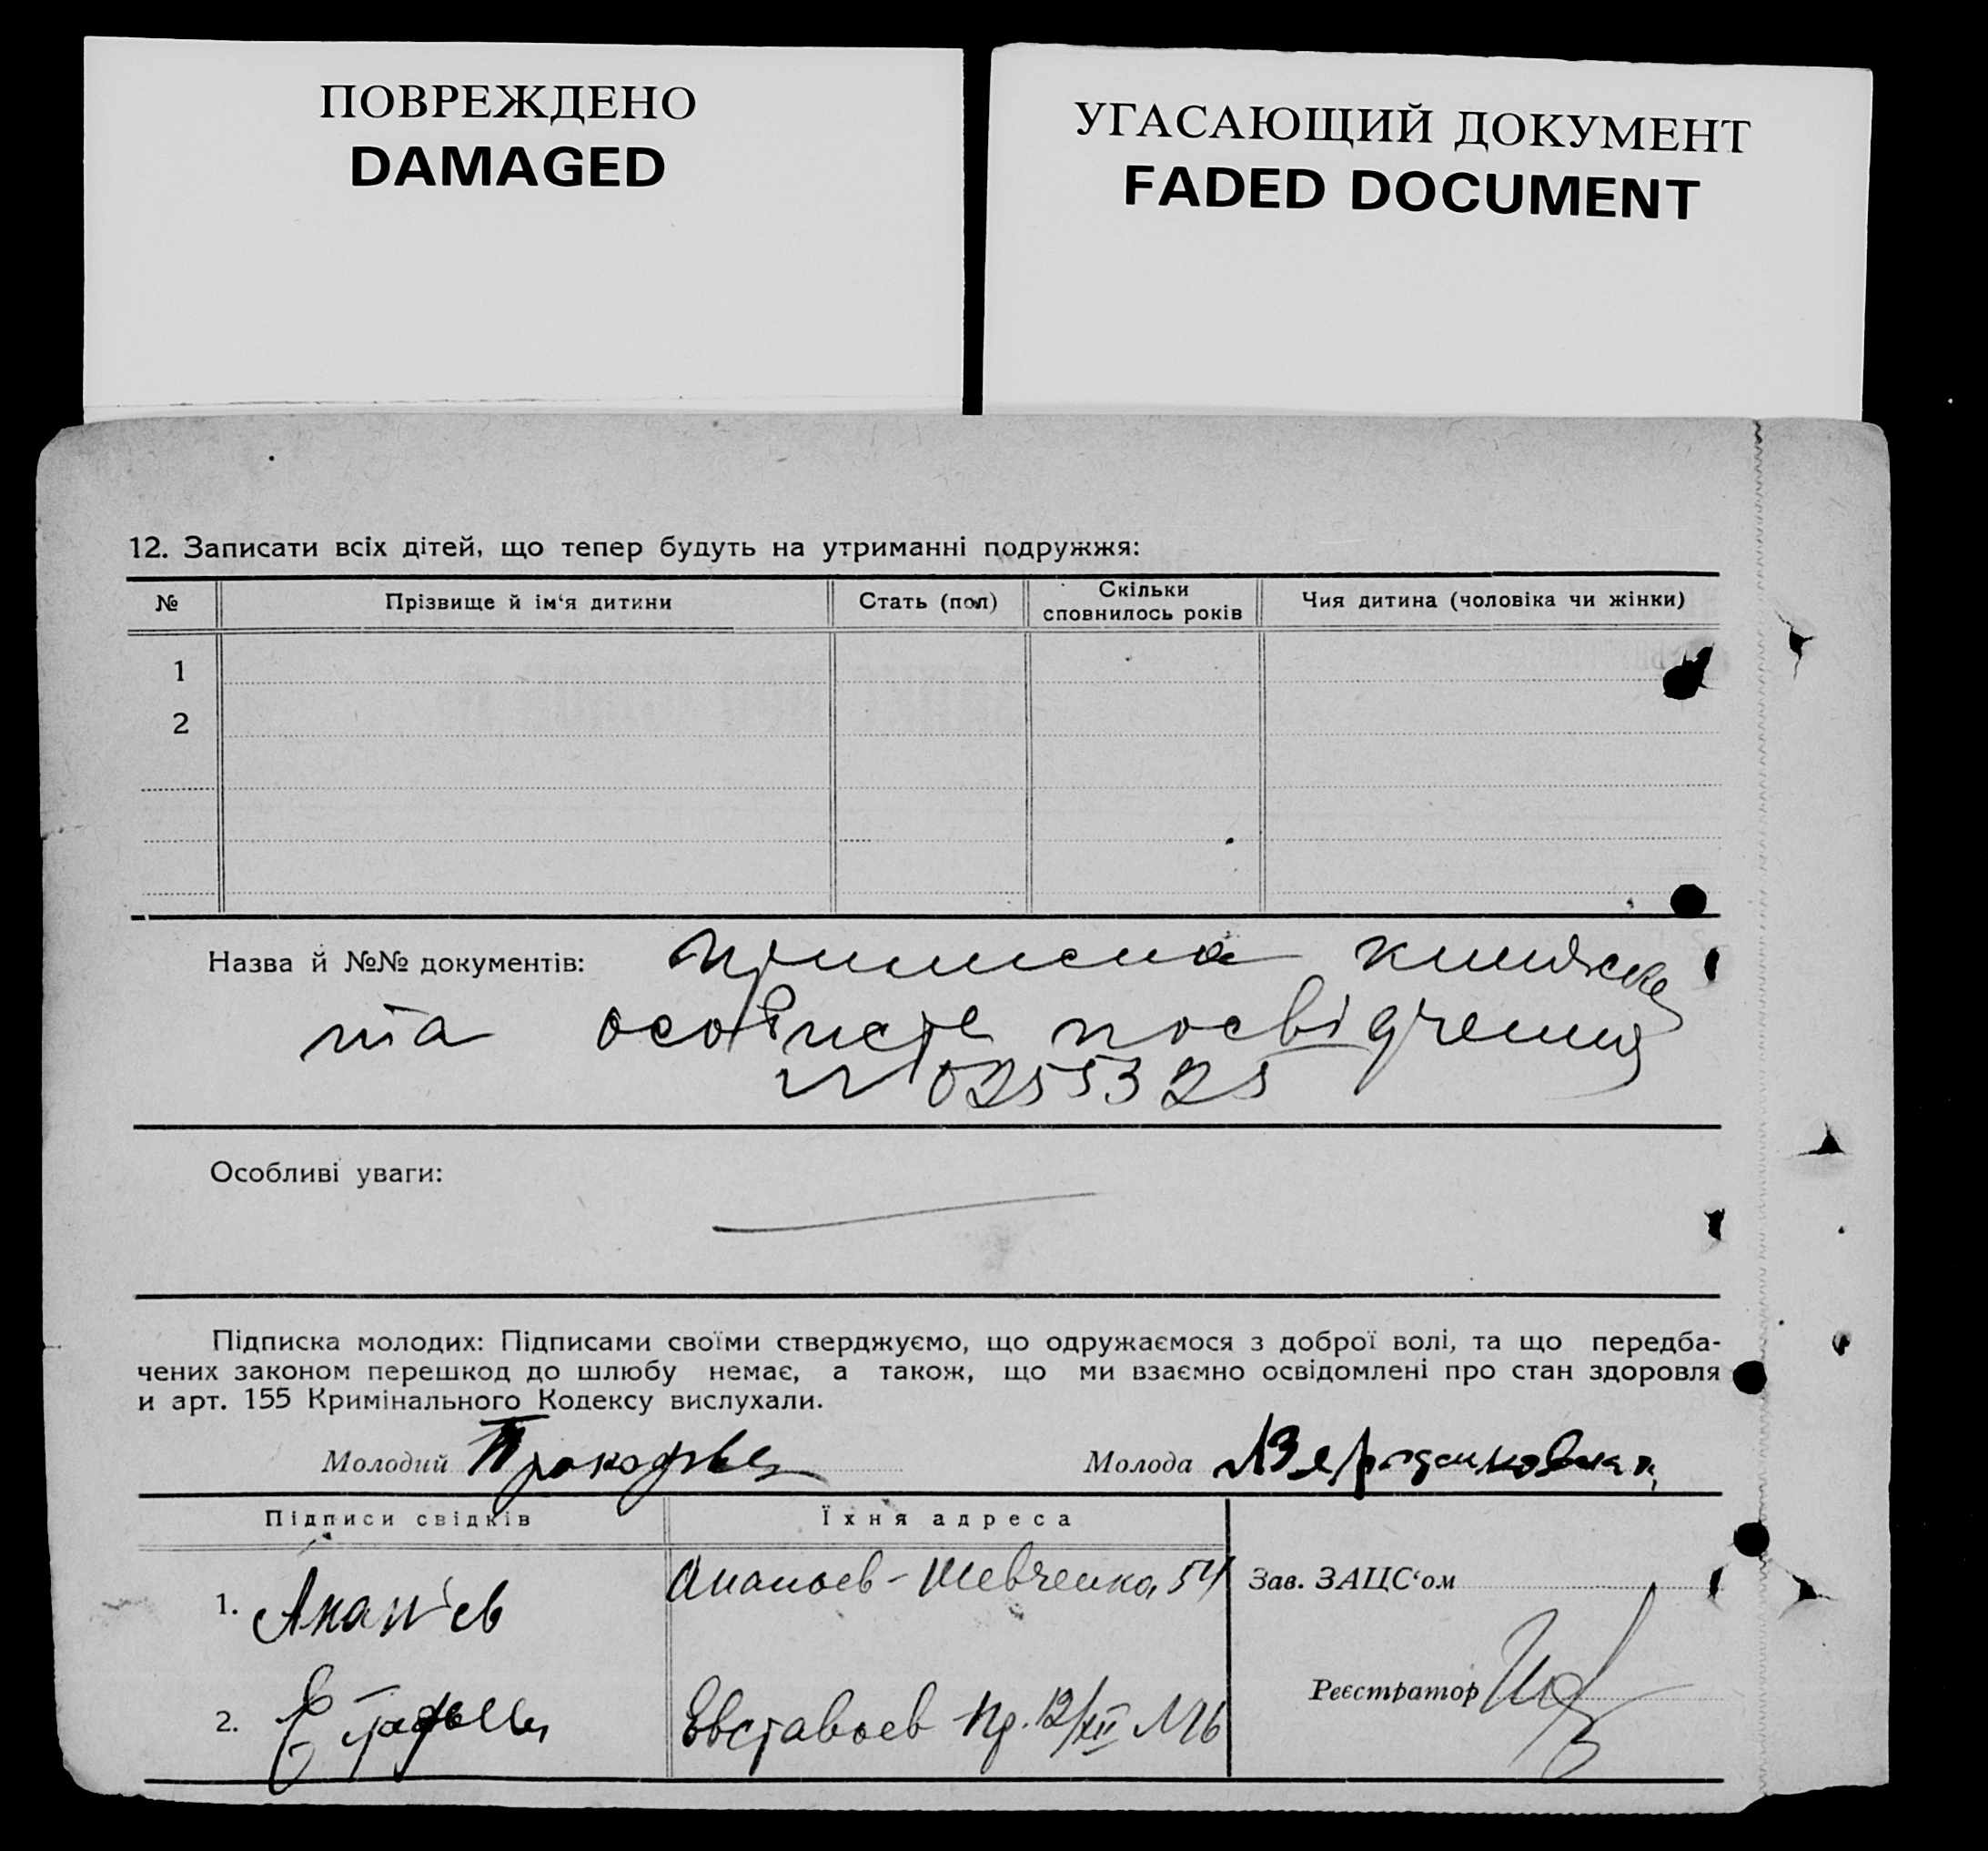 ПОВРЕЖДЕНО
DAMAGED
УГАСАЮЩИЙ ДОКУМЕНТ
FADED DOCUMENT
12. Записати всіх дітей, що тепер будуть на утриманні подружжя:
№ Прізвище й ім‘я дитини Стать (пол) Скільки сповнилось років Чия дитина (чоловіка чи жінки)
1
2
Назва й №№ документів: приписна книжка
та особисте посвідчення
№ 0255325
Особливі уваги:
Підписка молодих: Підписами своїми стверджуємо, що одружаємося з доброї волі, та що передба-
чених законом перешкод до шлюбу немає, а також, що ми взаємно освідомлені про стан здоровля
и арт. 155 Кримінального Кодексу вислухали.
Молодий Прокофьев Молода
Підписи свідків Їхня адреса
1. Анан'ев Ананьев - Шевченка 54 Зав. ЗАЦС‘ом
Реєстратор
2. Евставьев пр. 12/XII №6